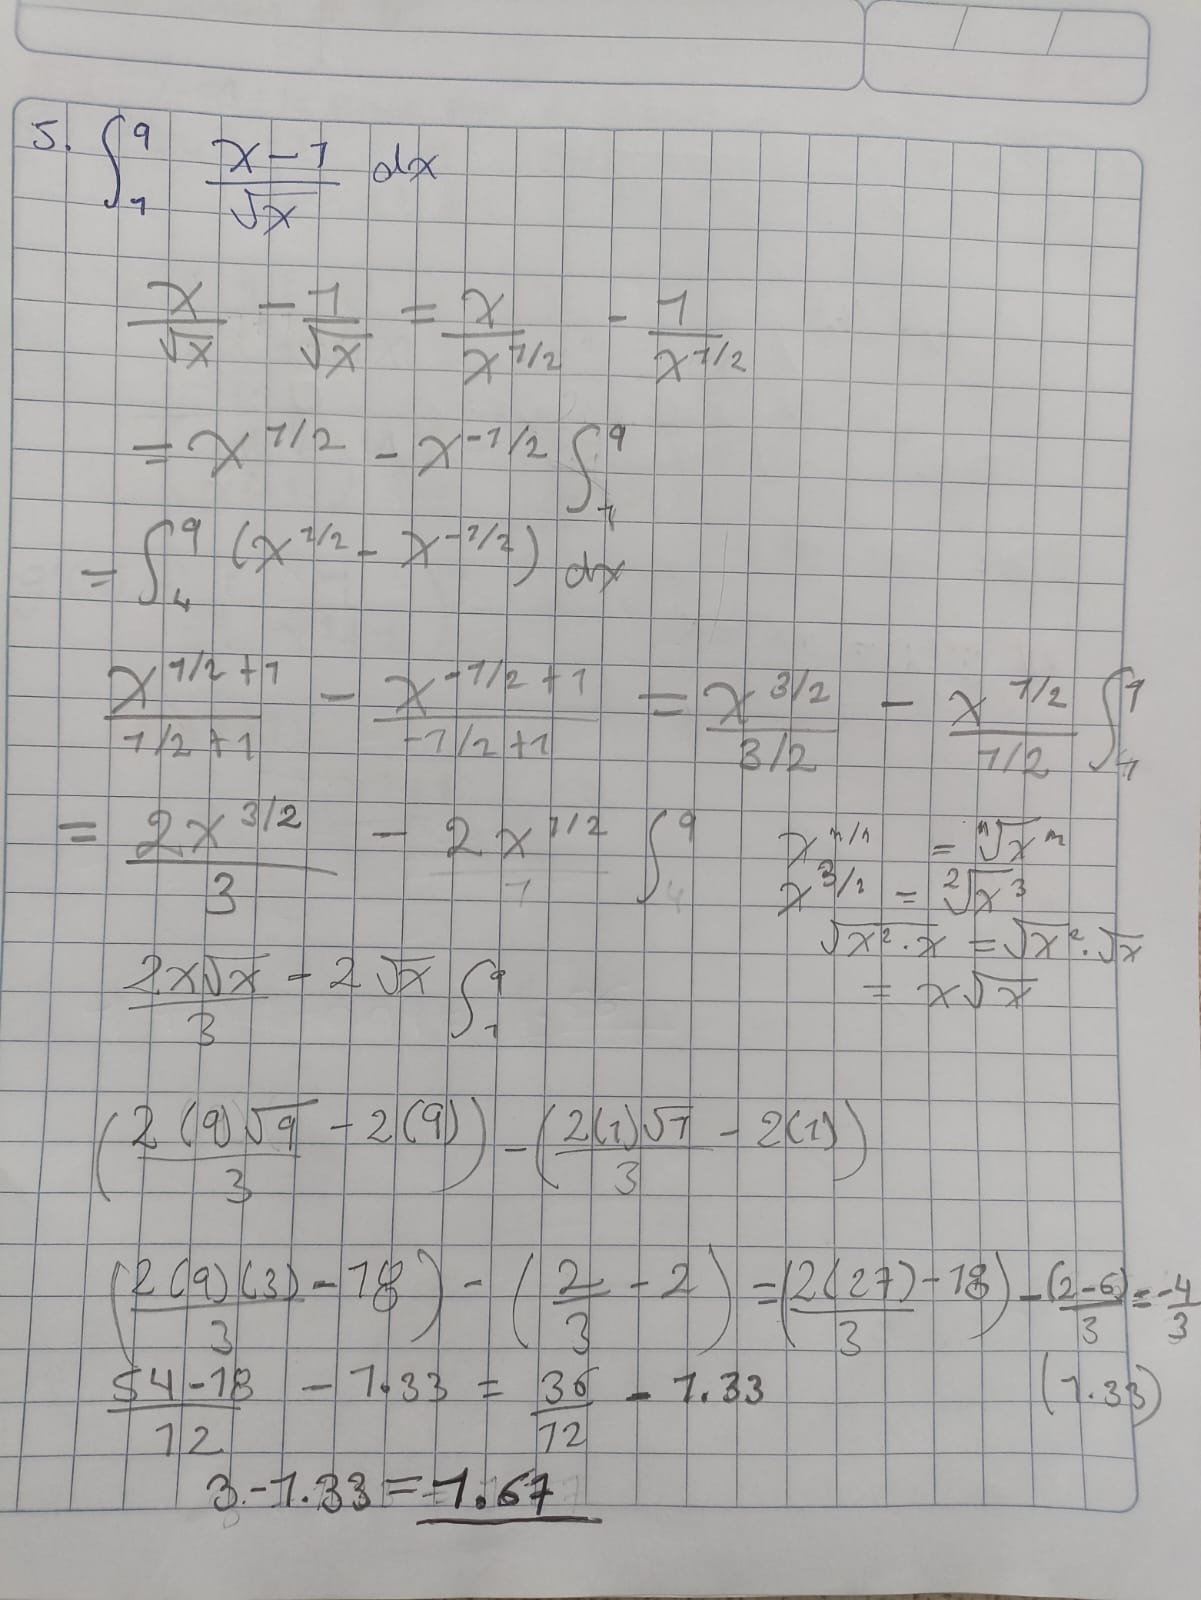 5. ∫₁⁹ (x-1)/√x dx
x/√x - 1/√x = x/x^1/2 - 1/x^1/2
= x^1/2 - x^-1/2 ∫₁⁹
= ∫₄⁹ (x^1/2 - x^-1/2) dx
x^(1/2+1)/(1/2+1) - x^(-1/2+1)/(-1/2+1) = x^3/2/(3/2) - x^1/2/(1/2) ∫₁⁹
= 2x^3/2/3 - 2x^1/2/1 ∫₄⁹
x^n/n = ⁿ√x^n
x^3/2 = ²√x³
√x²·x = √x²·√x
= x√x
2x√x/3 - 2√x ∫₁⁹
(2(9)√9/3 - 2(9)) - (2(1)√1/3 - 2(1))
(2(9)(3)/3 - 18) - (2/3 - 2) = (2(27)/3 - 18) - (2-6)/3 = -4/3
(1.33)
(54-18)/12 - 1.33 = 36/12 - 1.33
3 - 1.33 = 1.67